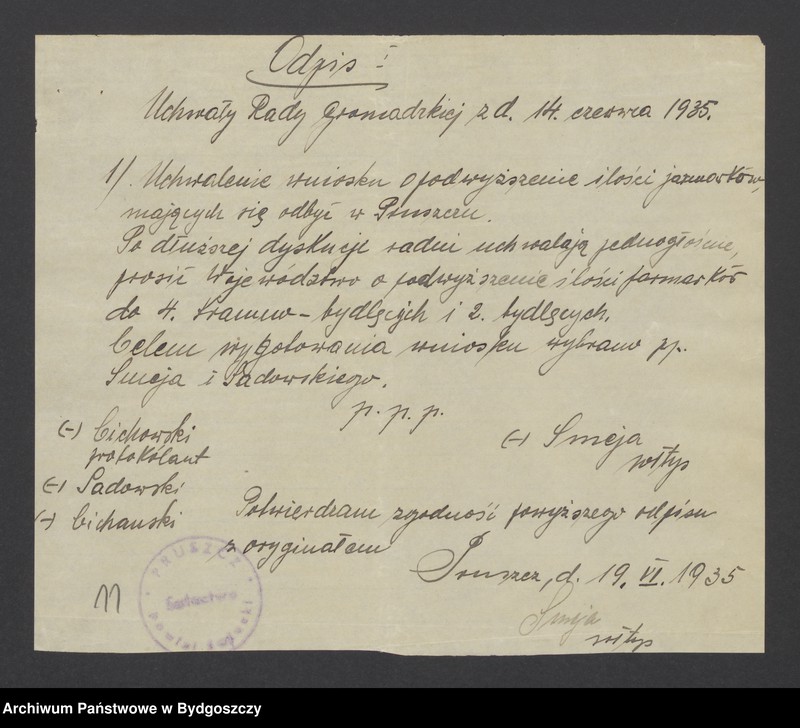 Odpis
Uchwały Rady Gromadzkiej z d. 14. czerwca 1935.
1/. Uchwalenie wniosku o podwyższenie ilości jarmarków,
mających się odbyć w Pruszczu.
Po dłuższej dyskucje radni uchwalają jednogłośnie,
prosić Województwo o podwyższenie ilości jarmarków
do 4. kramno-bydlęcych i 2. bydlęcych.
Celem wygotowania wniosku wybrano pp.
Smeja i Sadowskiego.
p. p. p.
(-) Cichowski
protokólant
(-) Smeja
sołtys
(-) Sadowski
(-) Cichański
Potwierdzam zgodność powyższego odpisu
z oryginałem
Pruszcz, d. 19. VI. 1935
Smeja
sołtys
11
PRUSZCZ
Sołectwo
powiat
Archiwum Państwowe w Bydgoszczy